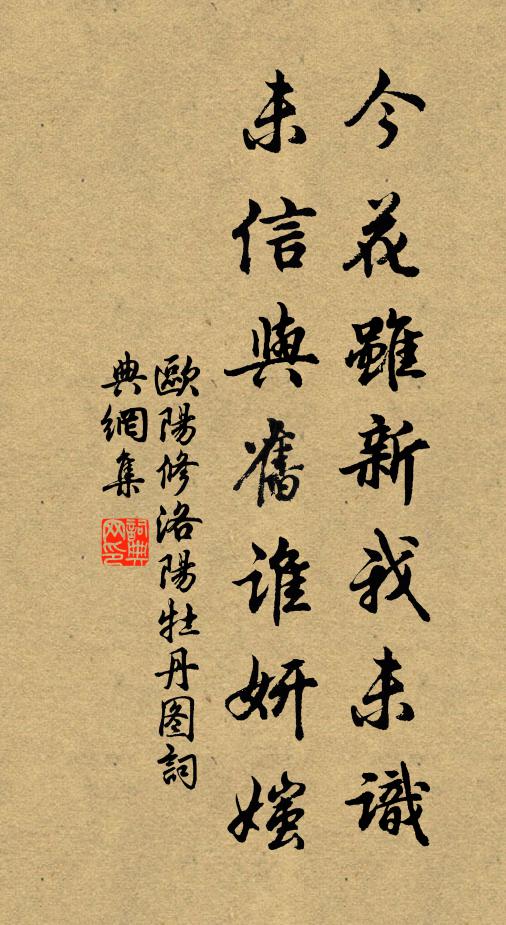 今花雖新我未識
未信與舊誰妍媸
歐陽修洛陽牡丹图詞
典網集
詞典网印